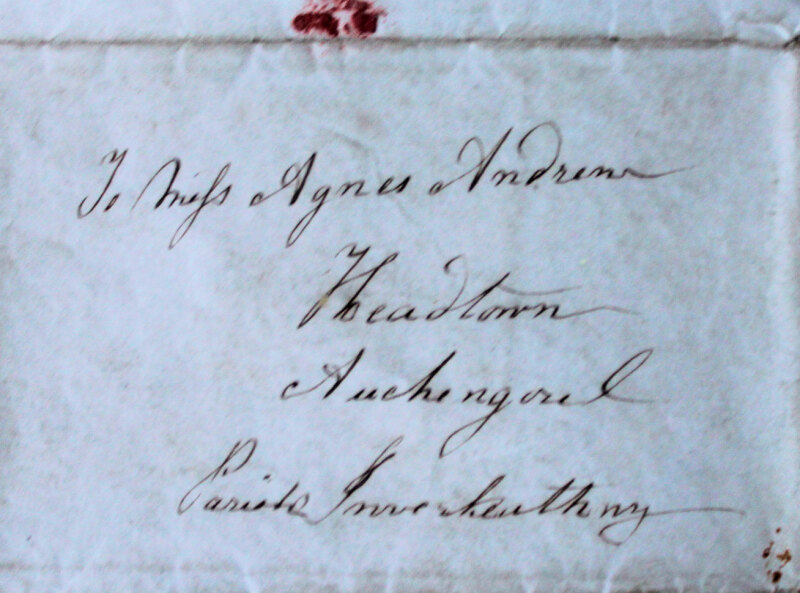 To Miss Agnes Andrew
Headtown
Auchengorel
Parish Inverkeuthny